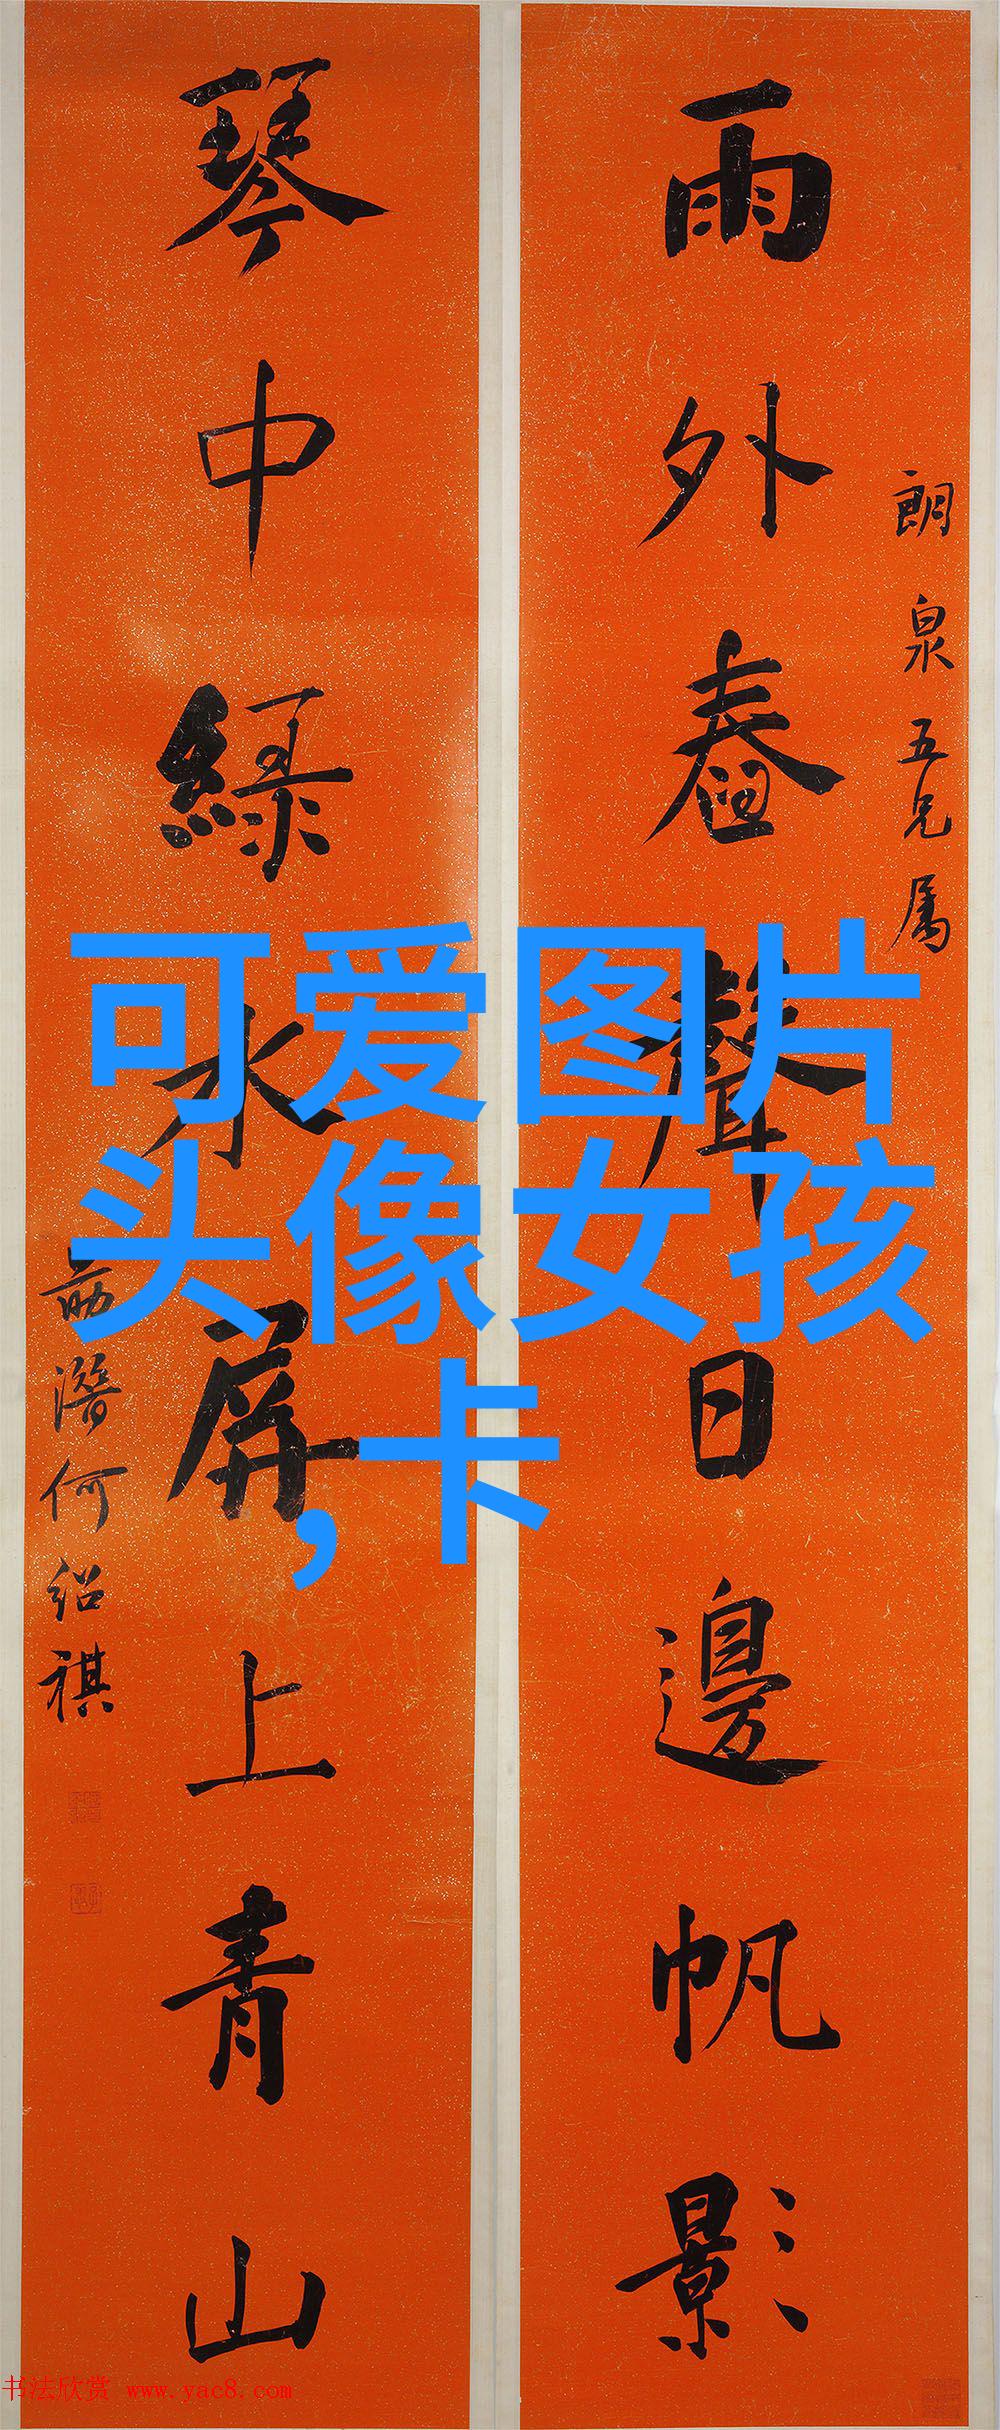 朗泉五兄属
雨外舂聲日邊帆影
琴中綠水屏上青山
勖潛何紹祺
可爱图片
头像女孩
,卡
书法欣赏 www.yac8.com